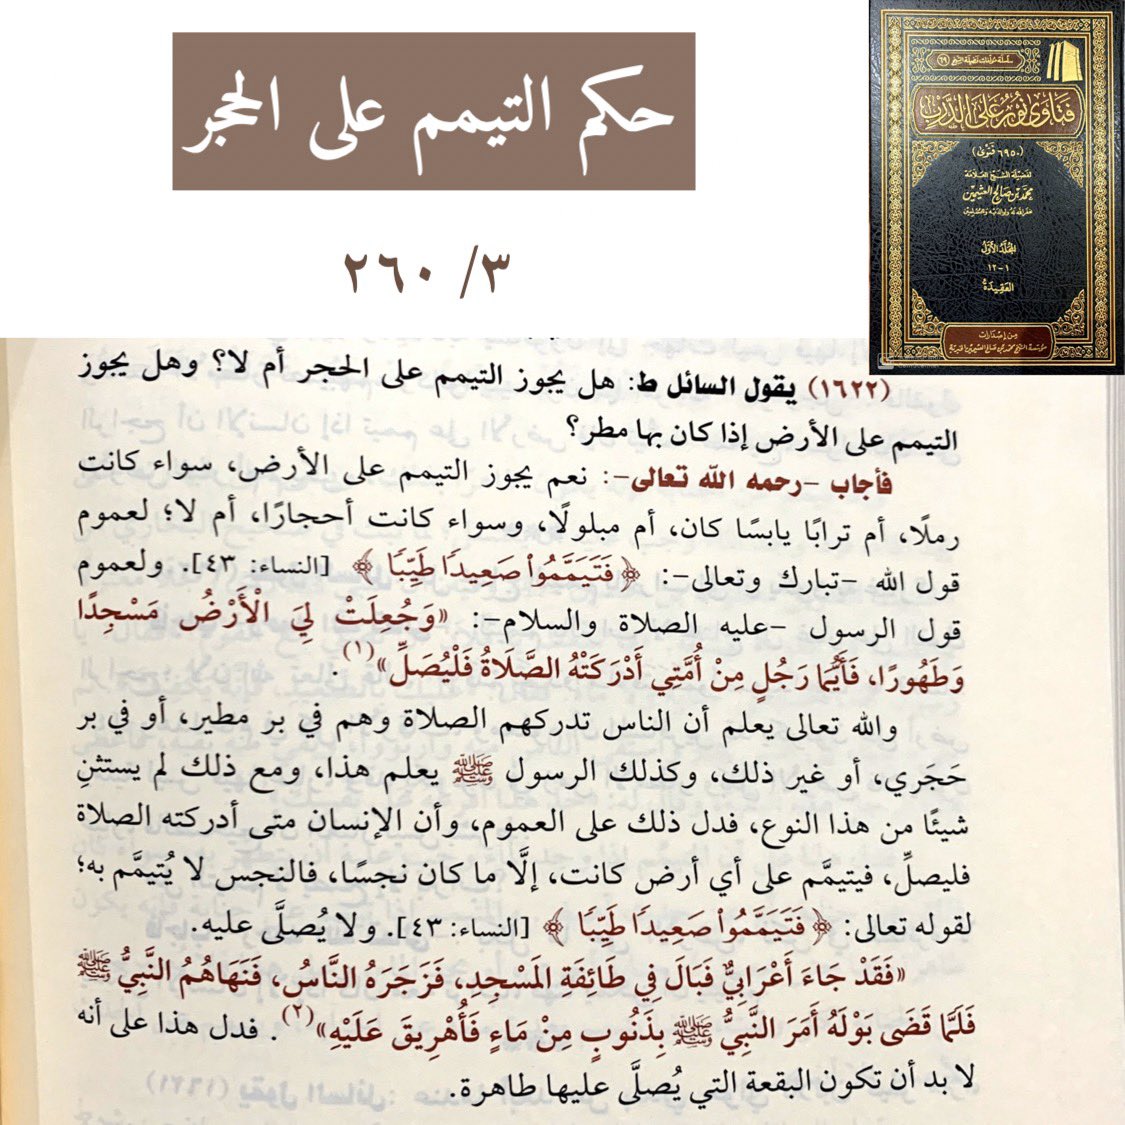 حكم التيمم على الحجر
٣/ ٢٦٠
سلسلة مؤلفات فضيلة الشيخ (٦٩)
فتاوى نور على الدرب
(٦٩٥٠ فتوى)
لفضيلة الشيخ العلامة
محمد بن صالح العثيمين
غفر الله له ولوالديه وللمسلمين
المجلد الأول
١-١٢
العقيدة
من إصدارات
مؤسسة الشيخ محمد بن صالح العثيمين الخيرية
(١٦٢٢) يقول السائل ط: هل يجوز التيمم على الحجر أم لا؟ وهل يجوز
التيمم على الأرض إذا كان بها مطر؟
فأجاب -رحمه الله تعالى-: نعم يجوز التيمم على الأرض، سواء كانت
رملًا، أم ترابًا يابسًا كان، أم مبلولًا، وسواء كانت أحجارًا، أم لا؛ لعموم
قول الله -تبارك وتعالى-: ﴿فَتَيَمَّمُوا۟ صَعِيدًا طَيِّبًا﴾ [النساء: ٤٣]. ولعموم
قول الرسول -عليه الصلاة والسلام-: «وَجُعِلَتْ لِيَ الْأَرْضُ مَسْجِدًا
وَطَهُورًا، فَأَيُّمَا رَجُلٍ مِنْ أُمَّتِي أَدْرَكَتْهُ الصَّلَاةُ فَلْيُصَلِّ»(١).
والله تعالى يعلم أن الناس تدركهم الصلاة وهم في بر مطير، أو في بر
حَجَري، أو غير ذلك، وكذلك الرسول ﷺ يعلم هذا، ومع ذلك لم يستثنِ
شيئًا من هذا النوع، فدل ذلك على العموم، وأن الإنسان متى أدركته الصلاة
فليصلِّ، فيتيمَّم على أي أرض كانت، إلَّا ما كان نجسًا، فالنجس لا يُتيمَّم به؛
لقوله تعالى: ﴿فَتَيَمَّمُوا۟ صَعِيدًا طَيِّبًا﴾ [النساء: ٤٣]. ولا يُصلَّى عليه.
«فَقَدْ جَاءَ أَعْرَابِيٌّ فَبَالَ فِي طَائِفَةِ المَسْجِدِ، فَزَجَرَهُ النَّاسُ، فَنَهَاهُمُ النَّبِيُّ ﷺ
فَلَمَّا قَضَى بَوْلَهُ أَمَرَ النَّبِيُّ ﷺ بِذَنُوبٍ مِنْ مَاءٍ فَأُهْرِيقَ عَلَيْهِ»(٢). فدل هذا على أنه
لا بد أن تكون البقعة التي يُصلَّى عليها طاهرة.